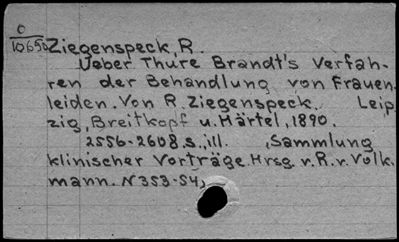 O
10650 Ziegenspeck, R.
Ueber Thure Brandt's Verfah-
ren der Behandlung von Frauen-
leiden. Von R. Ziegenspeck. Leip-
zig, Breitkopf u. Härtel, 1890.
2556-2608 s., ill. (Sammlung
klinischer Vorträge. Hrsg. v. R. v. Volk-
mann. N 353-54)